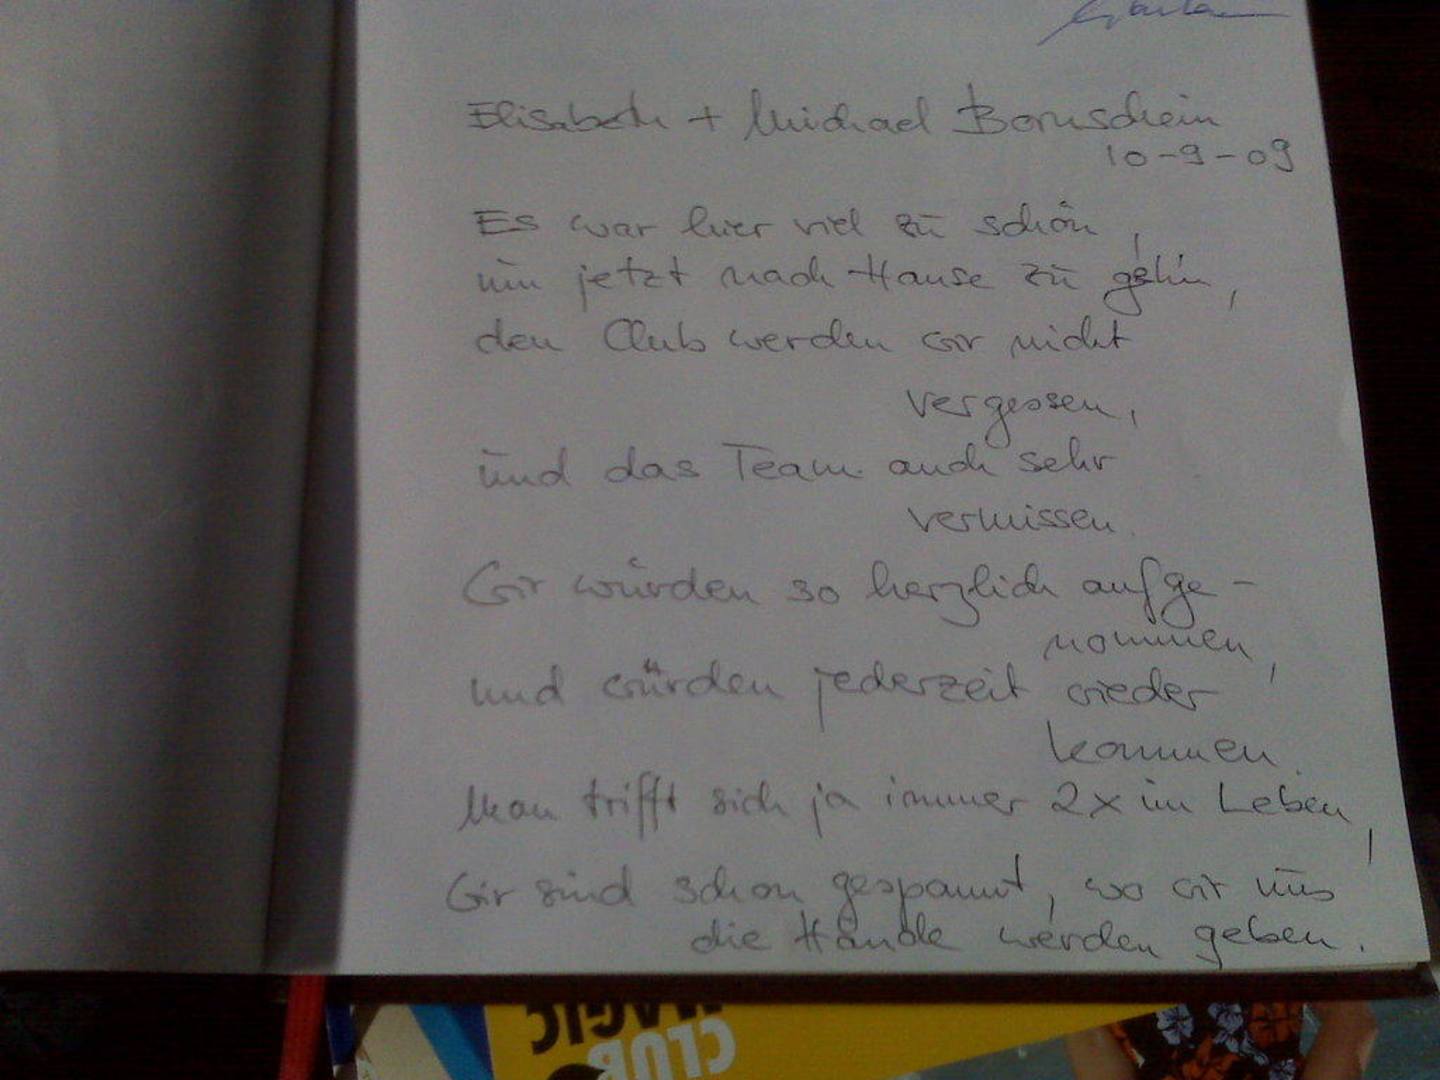 Elisabeth + Michael Bornschein
10-9-09
Es war hier viel zu schön,
um jetzt nach Hause zu gehn,
den Club werden wir nicht
vergessen,
und das Team auch sehr
vermissen.
Wir wurden so herzlich aufge-
nommen,
und würden jederzeit wieder
kommen.
Man trifft sich ja immer 2x im Leben,
Wir sind schon gespannt, wo wir uns
die Hände werden geben.
MAGIC
CLUB